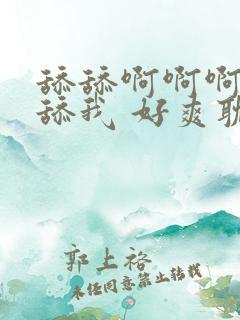 舔舔啊啊啊
舔我 好爽耽
郭上裕
未经同意禁止转载